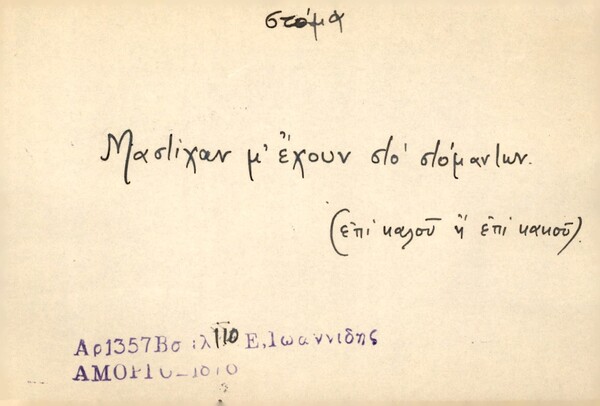 στόμα
Μαστίχαν μ' ἔχουν στο' στόμαντων.
(ἐπί καλοῦ ἤ ἐπί κακοῦ).
Αρ1357Βσ λ 110 Ε,Ιωαννιδης
ΑΜΟΡΓΟ